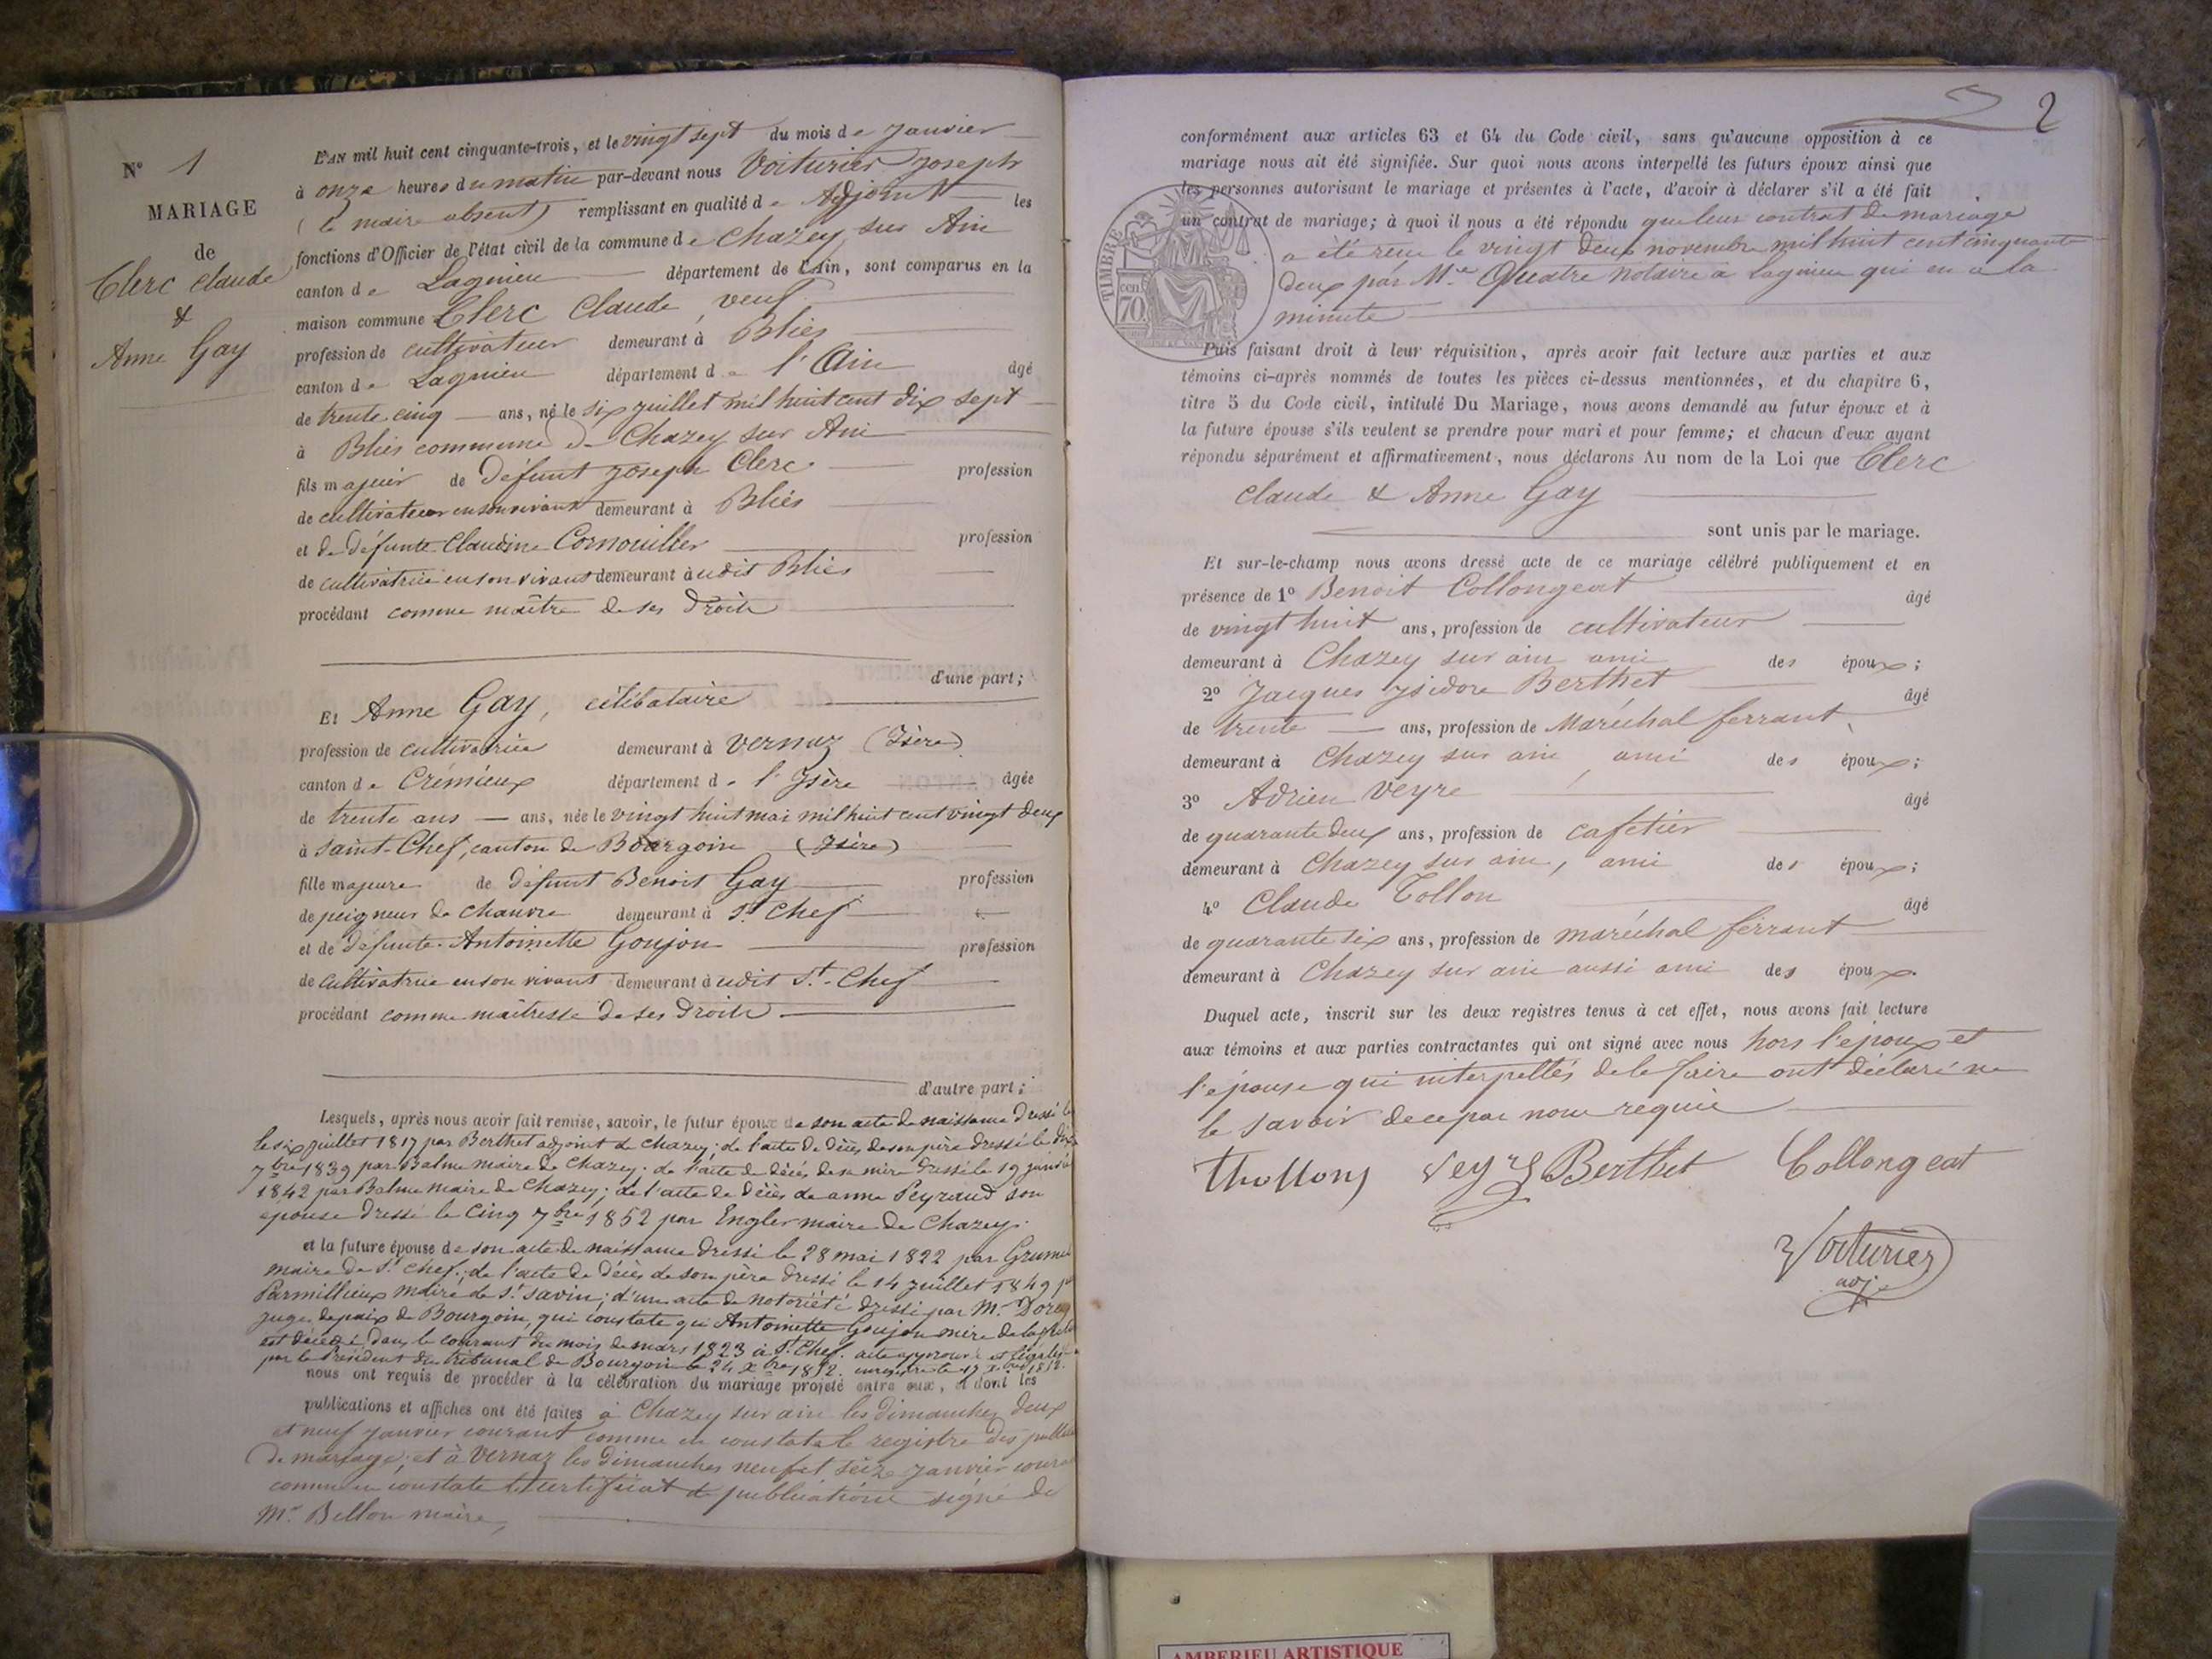 N° 1
MARIAGE
de
Clerc Claude
&
Anne Gay
L'AN mil huit cent cinquante-trois, et le vingt sept du mois de Janvier
à onze heures du matin par-devant nous Voiturier Joseph
(le maire absent) remplissant en qualité de Adjoint les
fonctions d'Officier de l'état civil de la commune de Chazey sur Ain
canton de Lagnieu département de l'Ain, sont comparus en la
maison commune Clerc Claude, veuf
profession de cultivateur demeurant à Bliés
canton de Lagnieu département de l'Ain âgé
de trente cinq ans, né le six juillet mil huit cent dix sept
à Bliés commune de Chazey sur Ain
fils majeur de défunt Joseph Clerc profession
de cultivateur en son vivant demeurant à Bliés
et de défunte Claudine Cornouiller profession
de cultivatrice en son vivant demeurant audit Bliés
procédant comme maître de ses droits
d'une part ;
Et Anne Gay, célibataire
profession de cultivatrice demeurant à Vernaz (Isère)
canton de Crémieux département de l'Isère âgée
de trente ans ans, née le vingt huit mai mil huit cent vingt deux
à Saint-Chef, canton de Bourgoin (Isère)
fille majeure de défunt Benoit Gay profession
de peigneur de chanvre demeurant à St Chef
et de défunte Antoinette Goujon profession
de cultivatrice en son vivant demeurant audit St-Chef
procédant comme maîtresse de ses droits
d'autre part ;
Lesquels, après nous avoir fait remise, savoir, le futur époux de son acte de naissance dressé le
le six juillet 1817 par Berthet adjoint de Chazey ; de l'acte de décès de son père dressé le dix
7bre 1839 par Balme maire de Chazey. de l'acte de décès de sa mère dressé le 19 janvier
1842 par Balme maire de Chazey ; de l'acte de décès de anne Peyraud son
épouse dressé le Cinq 7bre 1852 par Engler maire de Chazey.
et la future épouse de son acte de naissance dressé le 28 mai 1822 par
maire de St Chef ; de l'acte de décès de son père dressé le 14 juillet 1849
Parmillieux maire de St Savin ; d'un acte de notoriété dressé par Mr
juge de paix de Bourgoin, qui constate que Antoinette Goujon mère de
est décédée dans le courant du mois de mars 1823 à St Chef. acte approuvé et
par le Président du tribunal de Bourgoin le 24 Xbre 1852. enregistré le 17 Xbre 1852.
nous ont requis de procéder à la célébration du mariage projeté entre eux, et dont les
publications et affiches ont été faites à Chazey sur ain les dimanches deux
et neuf janvier courant comme en constate le registre des
de mariage ; et à Vernaz les dimanches neuf et seize janvier
comme en constate le certificat de publication signé de
Mr Bellon maire,
2
conformément aux articles 63 et 64 du Code civil, sans qu'aucune opposition à ce
mariage nous ait été signifiée. Sur quoi nous avons interpellé les futurs époux ainsi que
les personnes autorisant le mariage et présentes à l'acte, d'avoir à déclarer s'il a été fait
un contrat de mariage ; à quoi il nous a été répondu que leur contrat de mariage
a été reçu le vingt deux novembre mil huit cent cinquante
deux par Me Quatre notaire à Lagnieu qui en a la
minute
TIMBRE
cen
70
Puis faisant droit à leur réquisition, après avoir fait lecture aux parties et aux
témoins ci-après nommés de toutes les pièces ci-dessus mentionnées, et du chapitre 6,
titre 5 du Code civil, intitulé Du Mariage, nous avons demandé au futur époux et à
la future épouse s'ils veulent se prendre pour mari et pour femme ; et chacun d'eux ayant
répondu séparément et affirmativement, nous déclarons Au nom de la Loi que Clerc
Claude & Anne Gay
sont unis par le mariage.
Et sur-le-champ nous avons dressé acte de ce mariage célébré publiquement et en
présence de 1° Benoit Collongeat âgé
de vingt huit ans, profession de cultivateur
demeurant à Chazey sur ain ami des époux ;
2° Jacques Isidore Berthet âgé
de trente ans, profession de Maréchal ferrant
demeurant à Chazey sur ain, ami des époux ;
3° Adrien Veyre âgé
de quarante deux ans, profession de cafetier
demeurant à Chazey sur ain, ami des époux ;
4° Claude Tollon âgé
de quarante six ans, profession de maréchal ferrant
demeurant à Chazey sur ain aussi ami des époux.
Duquel acte, inscrit sur les deux registres tenus à cet effet, nous avons fait lecture
aux témoins et aux parties contractantes qui ont signé avec nous hors l'époux et
l'épouse qui interpellés de le faire ont déclaré ne
le savoir de ce par nous requis
Thollon Veyre Berthet Collongeat
Voiturier
adj.
AMBERIEU ARTISTIQUE